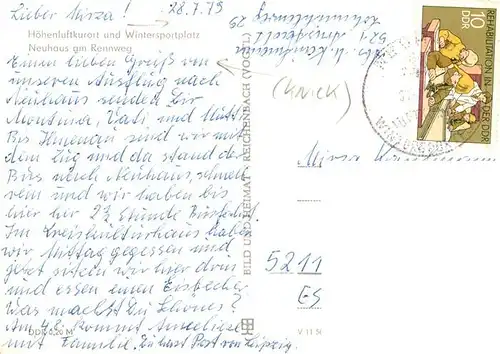 Lieber Mirza! 28.7.79
Höhenluftkurort und Wintersportplatz
Neuhaus am Rennweg
Einen lieben Gruß von
unserem Ausflug nach
Neuhaus senden Dir
Vati und Mutti
Bis Ilmenau sind wir mit
dem Zug und da stand der
Bus nach Neuhaus,
rein und wir haben bis
hier her 2½ Stunde Busfahrt.
Im Kreiskulturhaus haben
wir Mittag gegessen und
jetzt sitzen wir hier drin
und essen einen Eisbecher
Was machst Du Schönes?
Am 4.8. kommt Anneliese
mit Familie. Du hast Post von Leipzig.
DDR 0,20 M
BILD UND HEIMAT · REICHENBACH (VOGTL)
V 11 50
(Knick)
10
DDR
REHABILITATION IN DER DDR
Mirza
5211
ES